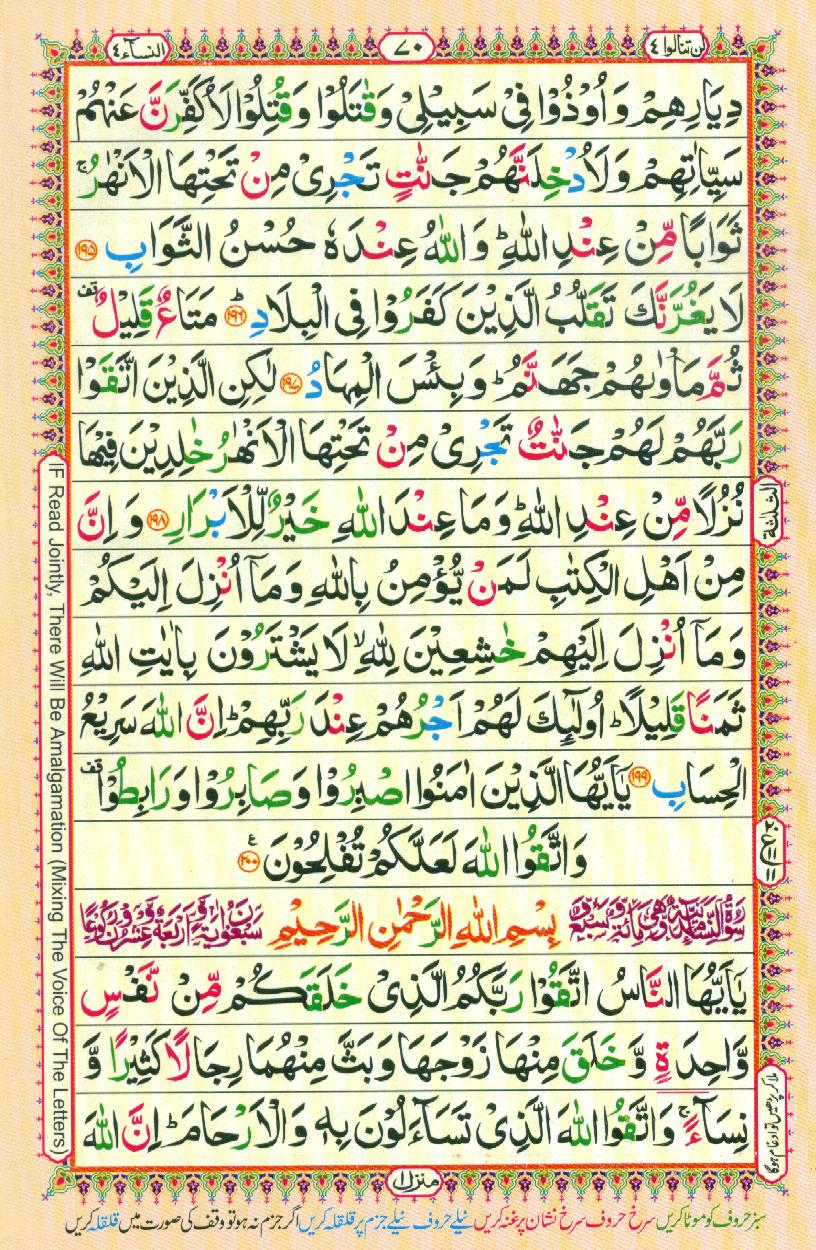 لن تنالوا ٤
٧٠
النسآء ٤
دِيَارِهِمْ وَاُوْذُوْا فِىْ سَبِيْلِىْ وَقٰتَلُوْا وَقُتِلُوْا لَاُكَفِّرَنَّ عَنْهُمْ
سَيِّاٰتِهِمْ وَلَاُدْخِلَنَّهُمْ جَنّٰتٍ تَجْرِىْ مِنْ تَحْتِهَا الْاَنْهٰرُ ۚ
ثَوَابًا مِّنْ عِنْدِ اللّٰهِ ؕ وَاللّٰهُ عِنْدَهٗ حُسْنُ الثَّوَابِ ﴿۱۹۵﴾
لَا يَغُرَّنَّكَ تَقَلُّبُ الَّذِيْنَ كَفَرُوْا فِى الْبِلَادِ ؕ ﴿۱۹۶﴾ مَتَاعٌ قَلِيْلٌ قف
ثُمَّ مَاْوٰىهُمْ جَهَنَّمُ ؕ وَبِئْسَ الْمِهَادُ ﴿۱۹۷﴾ لٰكِنِ الَّذِيْنَ اتَّقَوْا
رَبَّهُمْ لَهُمْ جَنّٰتٌ تَجْرِىْ مِنْ تَحْتِهَا الْاَنْهٰرُ خٰلِدِيْنَ فِيْهَا
نُزُلًا مِّنْ عِنْدِ اللّٰهِ ؕ وَمَا عِنْدَ اللّٰهِ خَيْرٌ لِّلْاَبْرَارِ ﴿۱۹۸﴾ وَاِنَّ
مِنْ اَهْلِ الْكِتٰبِ لَمَنْ يُّؤْمِنُ بِاللّٰهِ وَمَاۤ اُنْزِلَ اِلَيْكُمْ
وَمَاۤ اُنْزِلَ اِلَيْهِمْ خٰشِعِيْنَ لِلّٰهِ ۙ لَا يَشْتَرُوْنَ بِاٰيٰتِ اللّٰهِ
ثَمَنًا قَلِيْلًا ؕ اُولٰٓئِكَ لَهُمْ اَجْرُهُمْ عِنْدَ رَبِّهِمْ ؕ اِنَّ اللّٰهَ سَرِيْعُ
الْحِسَابِ ﴿۱۹۹﴾ يٰۤاَيُّهَا الَّذِيْنَ اٰمَنُوا اصْبِرُوْا وَصَابِرُوْا وَرَابِطُوْا قف
وَاتَّقُوا اللّٰهَ لَعَلَّكُمْ تُفْلِحُوْنَ ﴿۲۰۰﴾ ع
بِسْمِ اللّٰهِ الرَّحْمٰنِ الرَّحِيْمِ
يٰۤاَيُّهَا النَّاسُ اتَّقُوْا رَبَّكُمُ الَّذِىْ خَلَقَكُمْ مِّنْ نَّفْسٍ
وَّاحِدَةٍ وَّخَلَقَ مِنْهَا زَوْجَهَا وَبَثَّ مِنْهُمَا رِجَالًا كَثِيْرًا وَّ
نِسَآءً ۚ وَاتَّقُوا اللّٰهَ الَّذِىْ تَسَآءَلُوْنَ بِهٖ وَالْاَرْحَامَ ؕ اِنَّ اللّٰهَ
منزل ١
سبز حروف کو موٹا کریں سرخ حروف سرخ نشان پر غنہ کریں نیلے حروف نیلے جزم پر قلقلہ کریں اگر جزم نہ ہو تو وقف کی صورت میں قلقلہ کریں
الثلثة
ملا کر پڑھیں تو ادغام ہوگا
IF Read Jointly, There Will Be Amalgamation (Mixing The Voice Of The Letters)